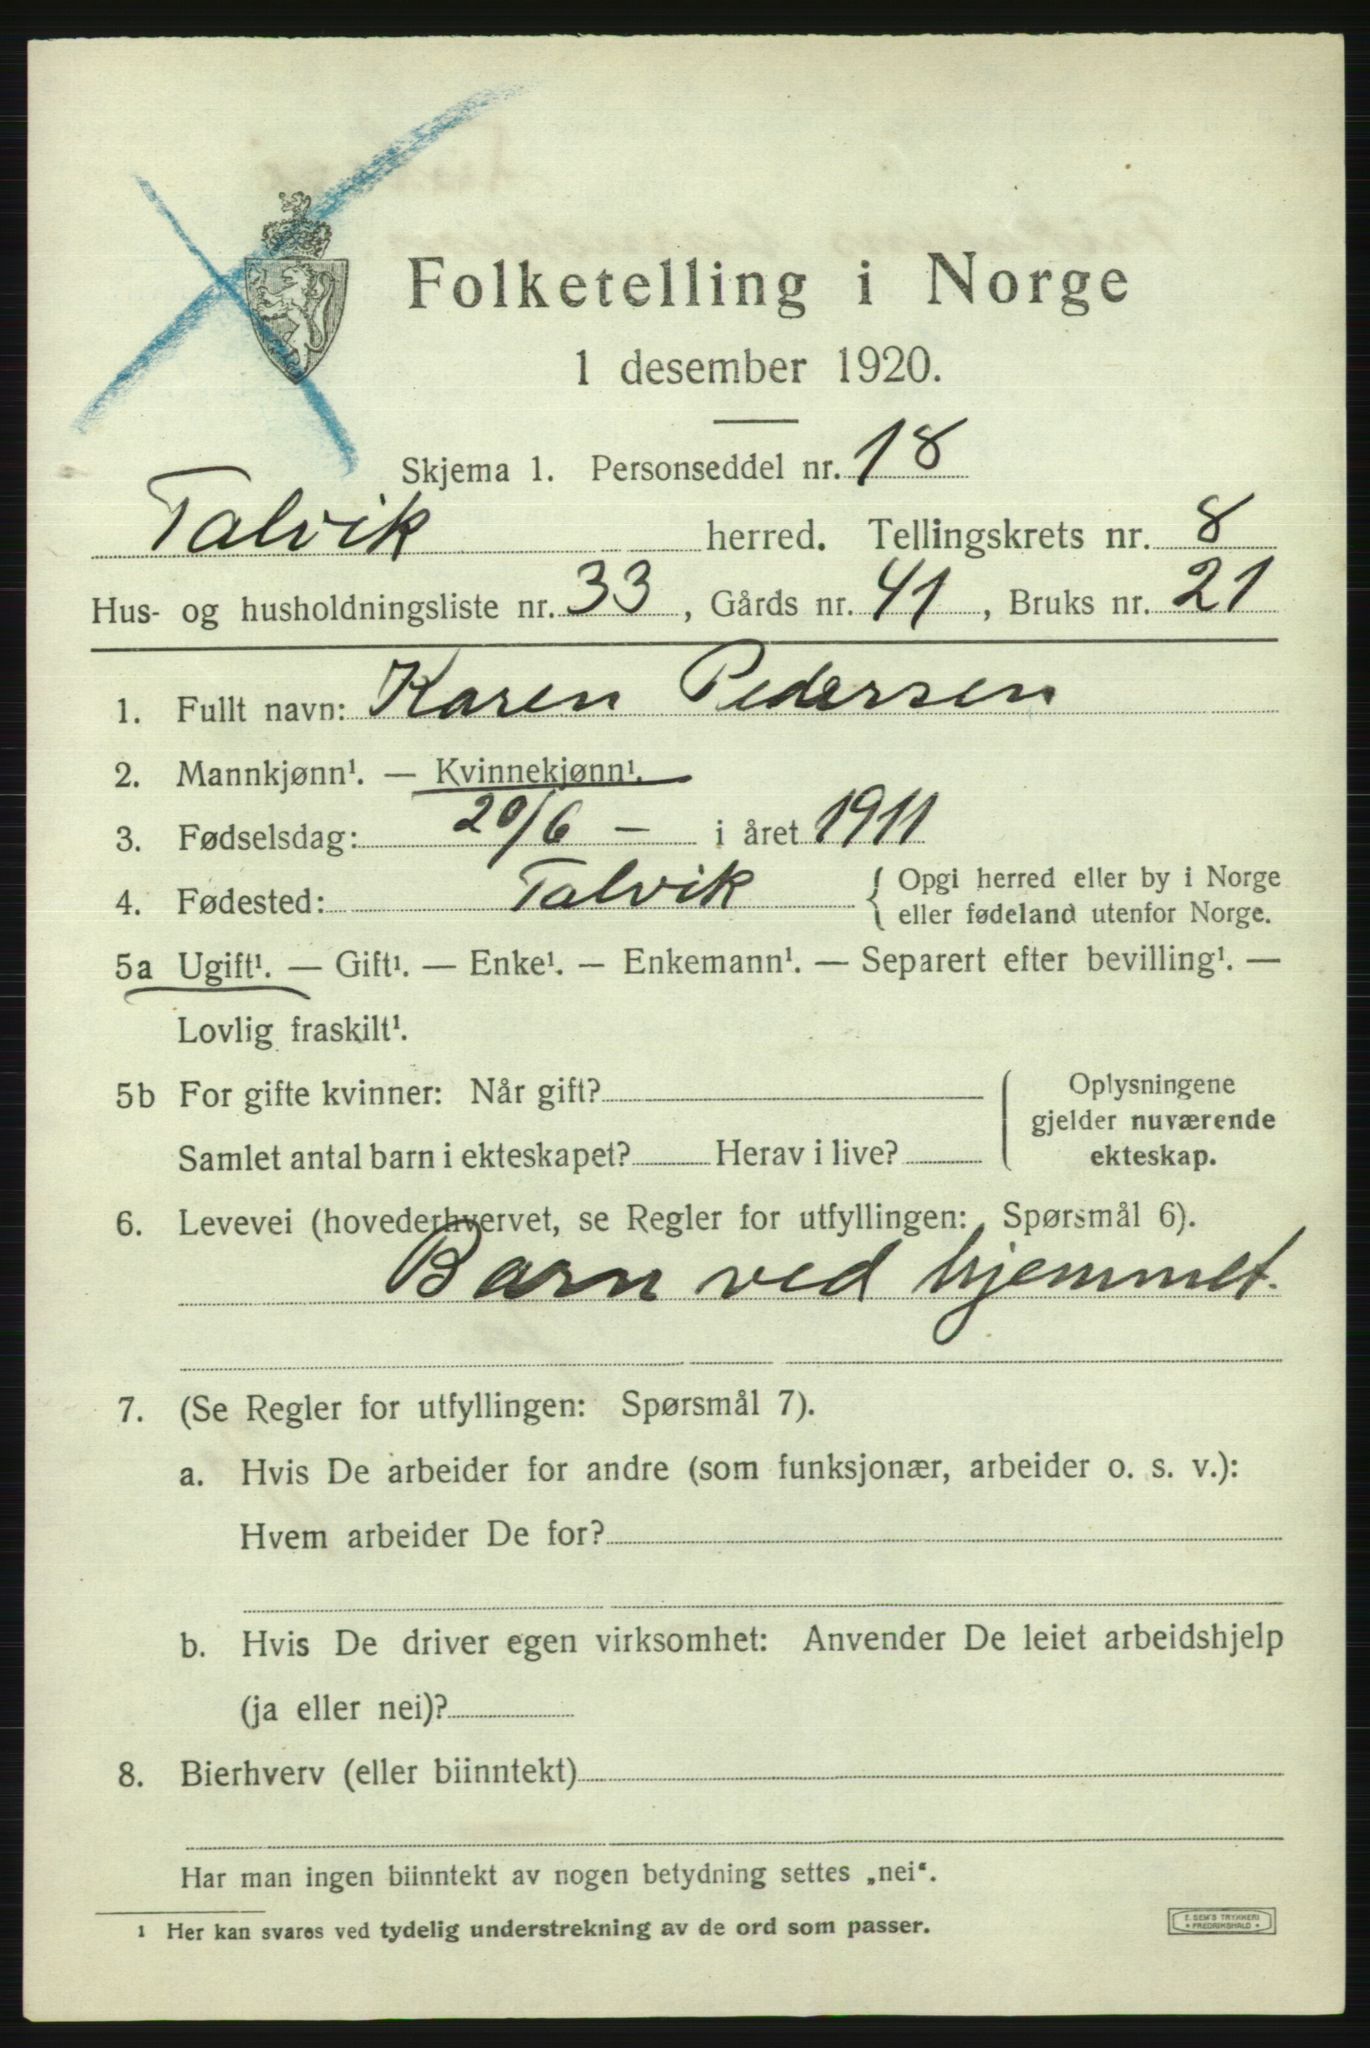 Folketelling i Norge
1 desember 1920.
Skjema 1. Personseddel nr. 18
Talvik herred. Tellingskrets nr. 8
Hus- og husholdningsliste nr. 33, Gårds nr. 41, Bruks nr. 21
1. Fullt navn: Karen Pedersen
2. Mannkjønn¹. — Kvinnekjønn¹.
3. Fødselsdag: 20/6 — i året 1911
4. Fødested: Talvik { Opgi herred eller by i Norge
eller fødeland utenfor Norge.
5a Ugift¹. — Gift¹. — Enke¹. — Enkemann¹. — Separert efter bevilling¹. —
Lovlig fraskilt¹.
5b For gifte kvinner: Når gift?
Samlet antal barn i ekteskapet? Herav i live?
Oplysningene
gjelder nuværende
ekteskap.
6. Levevei (hovederhvervet, se Regler for utfyllingen: Spørsmål 6).
Barn ved hjemmet.
7. (Se Regler for utfyllingen: Spørsmål 7).
a. Hvis De arbeider for andre (som funksjonær, arbeider o. s. v.):
Hvem arbeider De for?
b. Hvis De driver egen virksomhet: Anvender De leiet arbeidshjelp
(ja eller nei)?
8. Bierhverv (eller biinntekt)
Har man ingen biinntekt av nogen betydning settes „nei“.
¹ Her kan svares ved tydelig understrekning av de ord som passer.
E. SEM'S TRYKKERI
* FREDRIKSHALD *